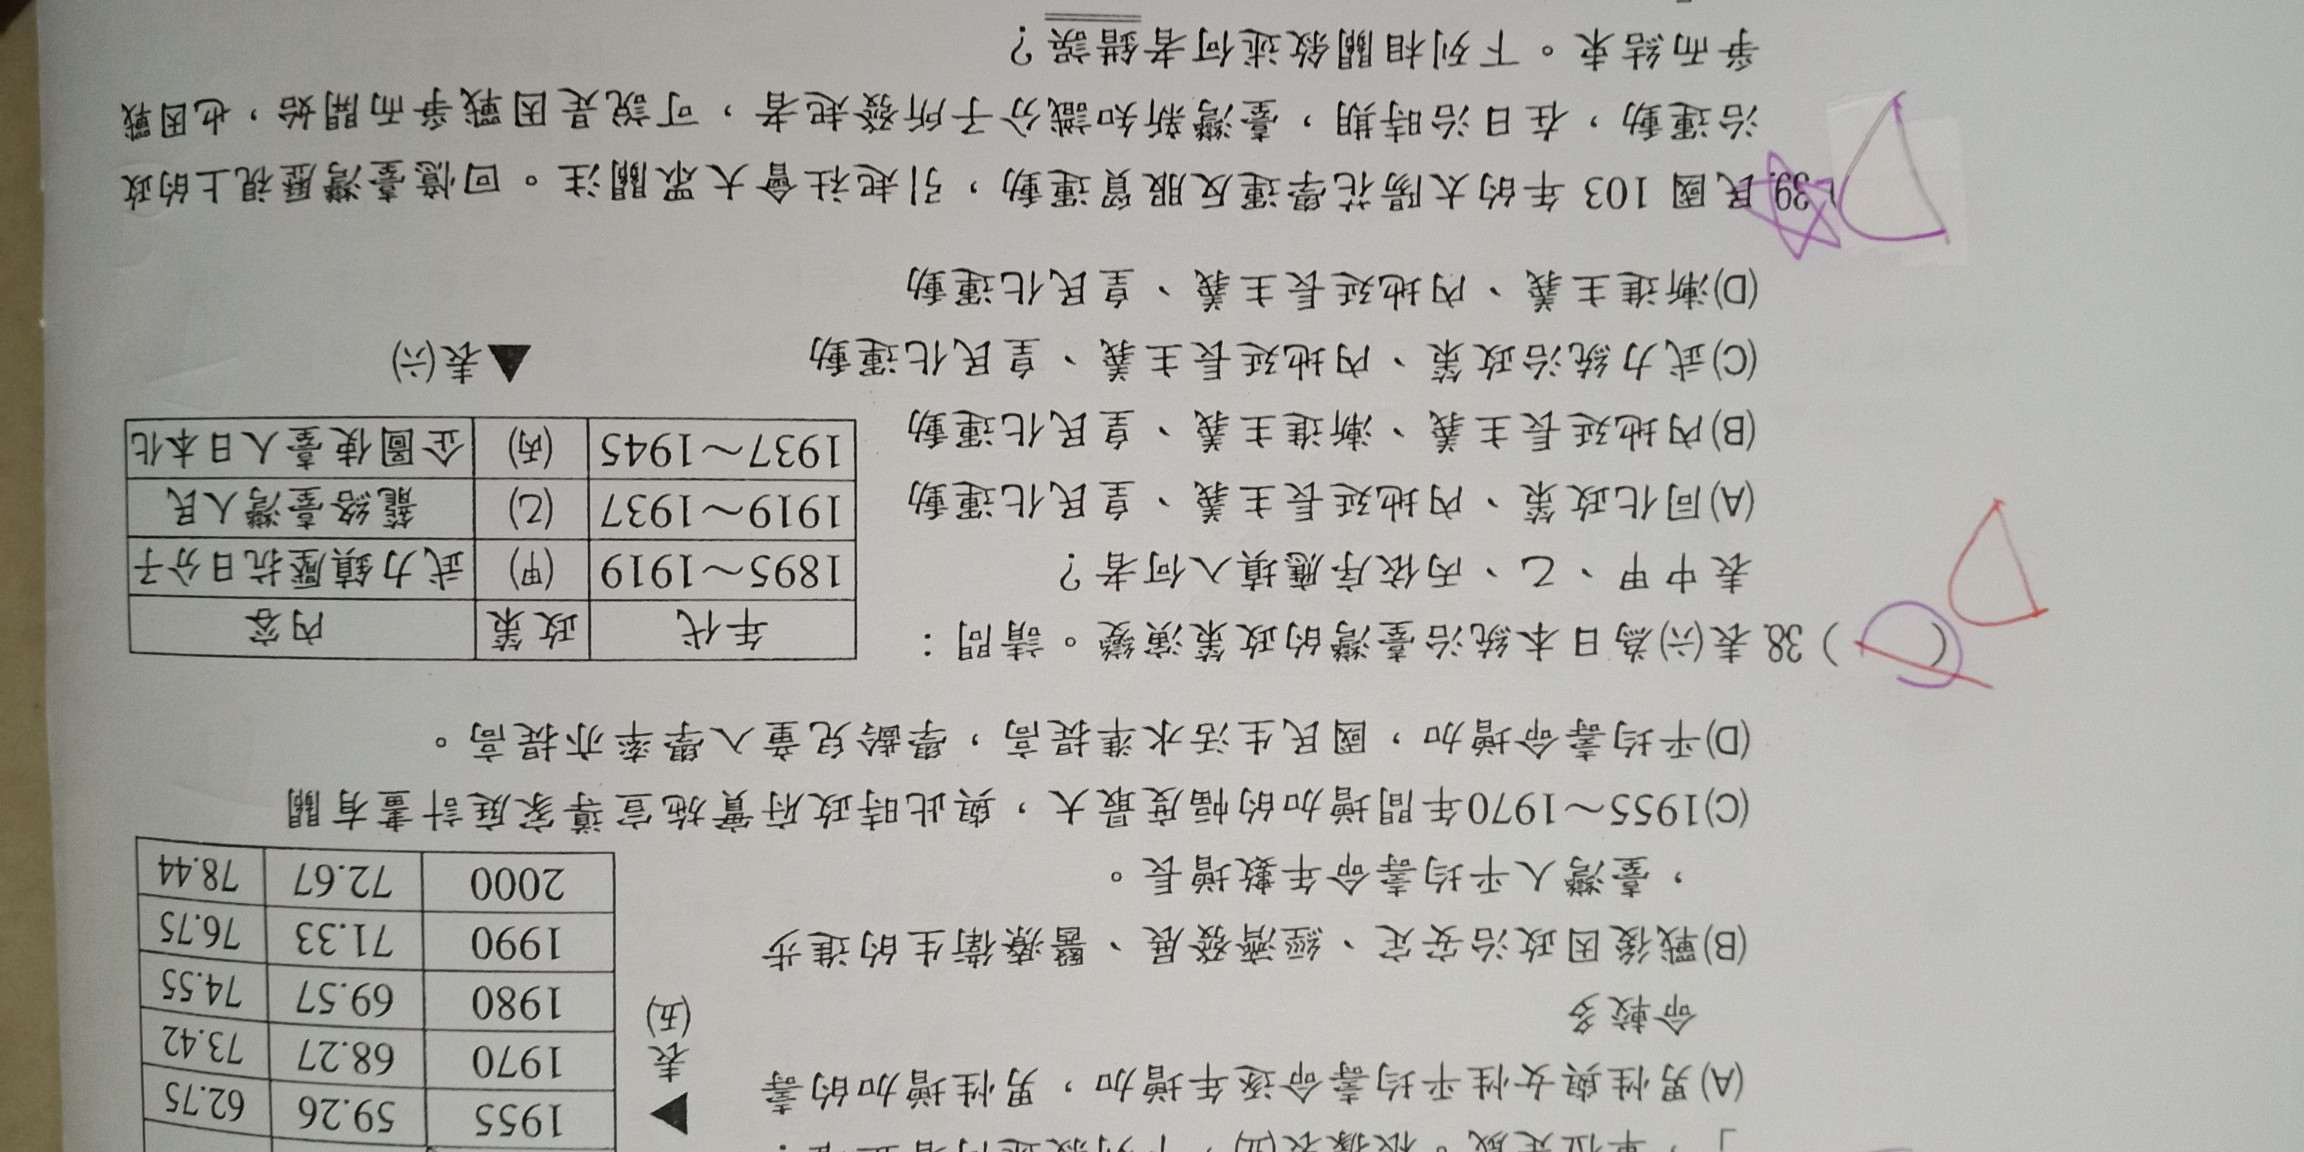 」，單位是歲。依據表(四)，下列敘述何者正確：
(A)男性與女性平均壽命逐年增加，男性增加的壽
命較多
(B)戰後因政治安定、經濟發展、醫療衛生的進步
，臺灣人平均壽命年數增長。
(C)1955～1970年間增加的幅度最大，與此時政府實施宣導家庭計畫有關
(D)平均壽命增加，國民生活水準提高，學齡兒童入學率亦提高。
▲表(五)
1955 59.26 62.75
1970 68.27 73.42
1980 69.57 74.55
1990 71.33 76.75
2000 72.67 78.44
( )38.表(六)為日本統治臺灣的政策演變。請問：
表中甲、乙、丙依序應填入何者？
(A)同化政策、內地延長主義、皇民化運動
(B)內地延長主義、漸進主義、皇民化運動
(C)武力統治政策、內地延長主義、皇民化運動
(D)漸進主義、內地延長主義、皇民化運動
年代 政策 內容
1895～1919 (甲) 武力鎮壓抗日分子
1919～1937 (乙) 籠絡臺灣人民
1937～1945 (丙) 企圖使臺人日本化
▲表(六)
39.民國 103 年的太陽花學運反服貿運動，引起社會大眾關注。回憶臺灣歷視上的政
治運動，在日治時期，臺灣新知識分子所發起者，可說是因戰爭而開始，也因戰
爭而結束。下列相關敘述何者錯誤？